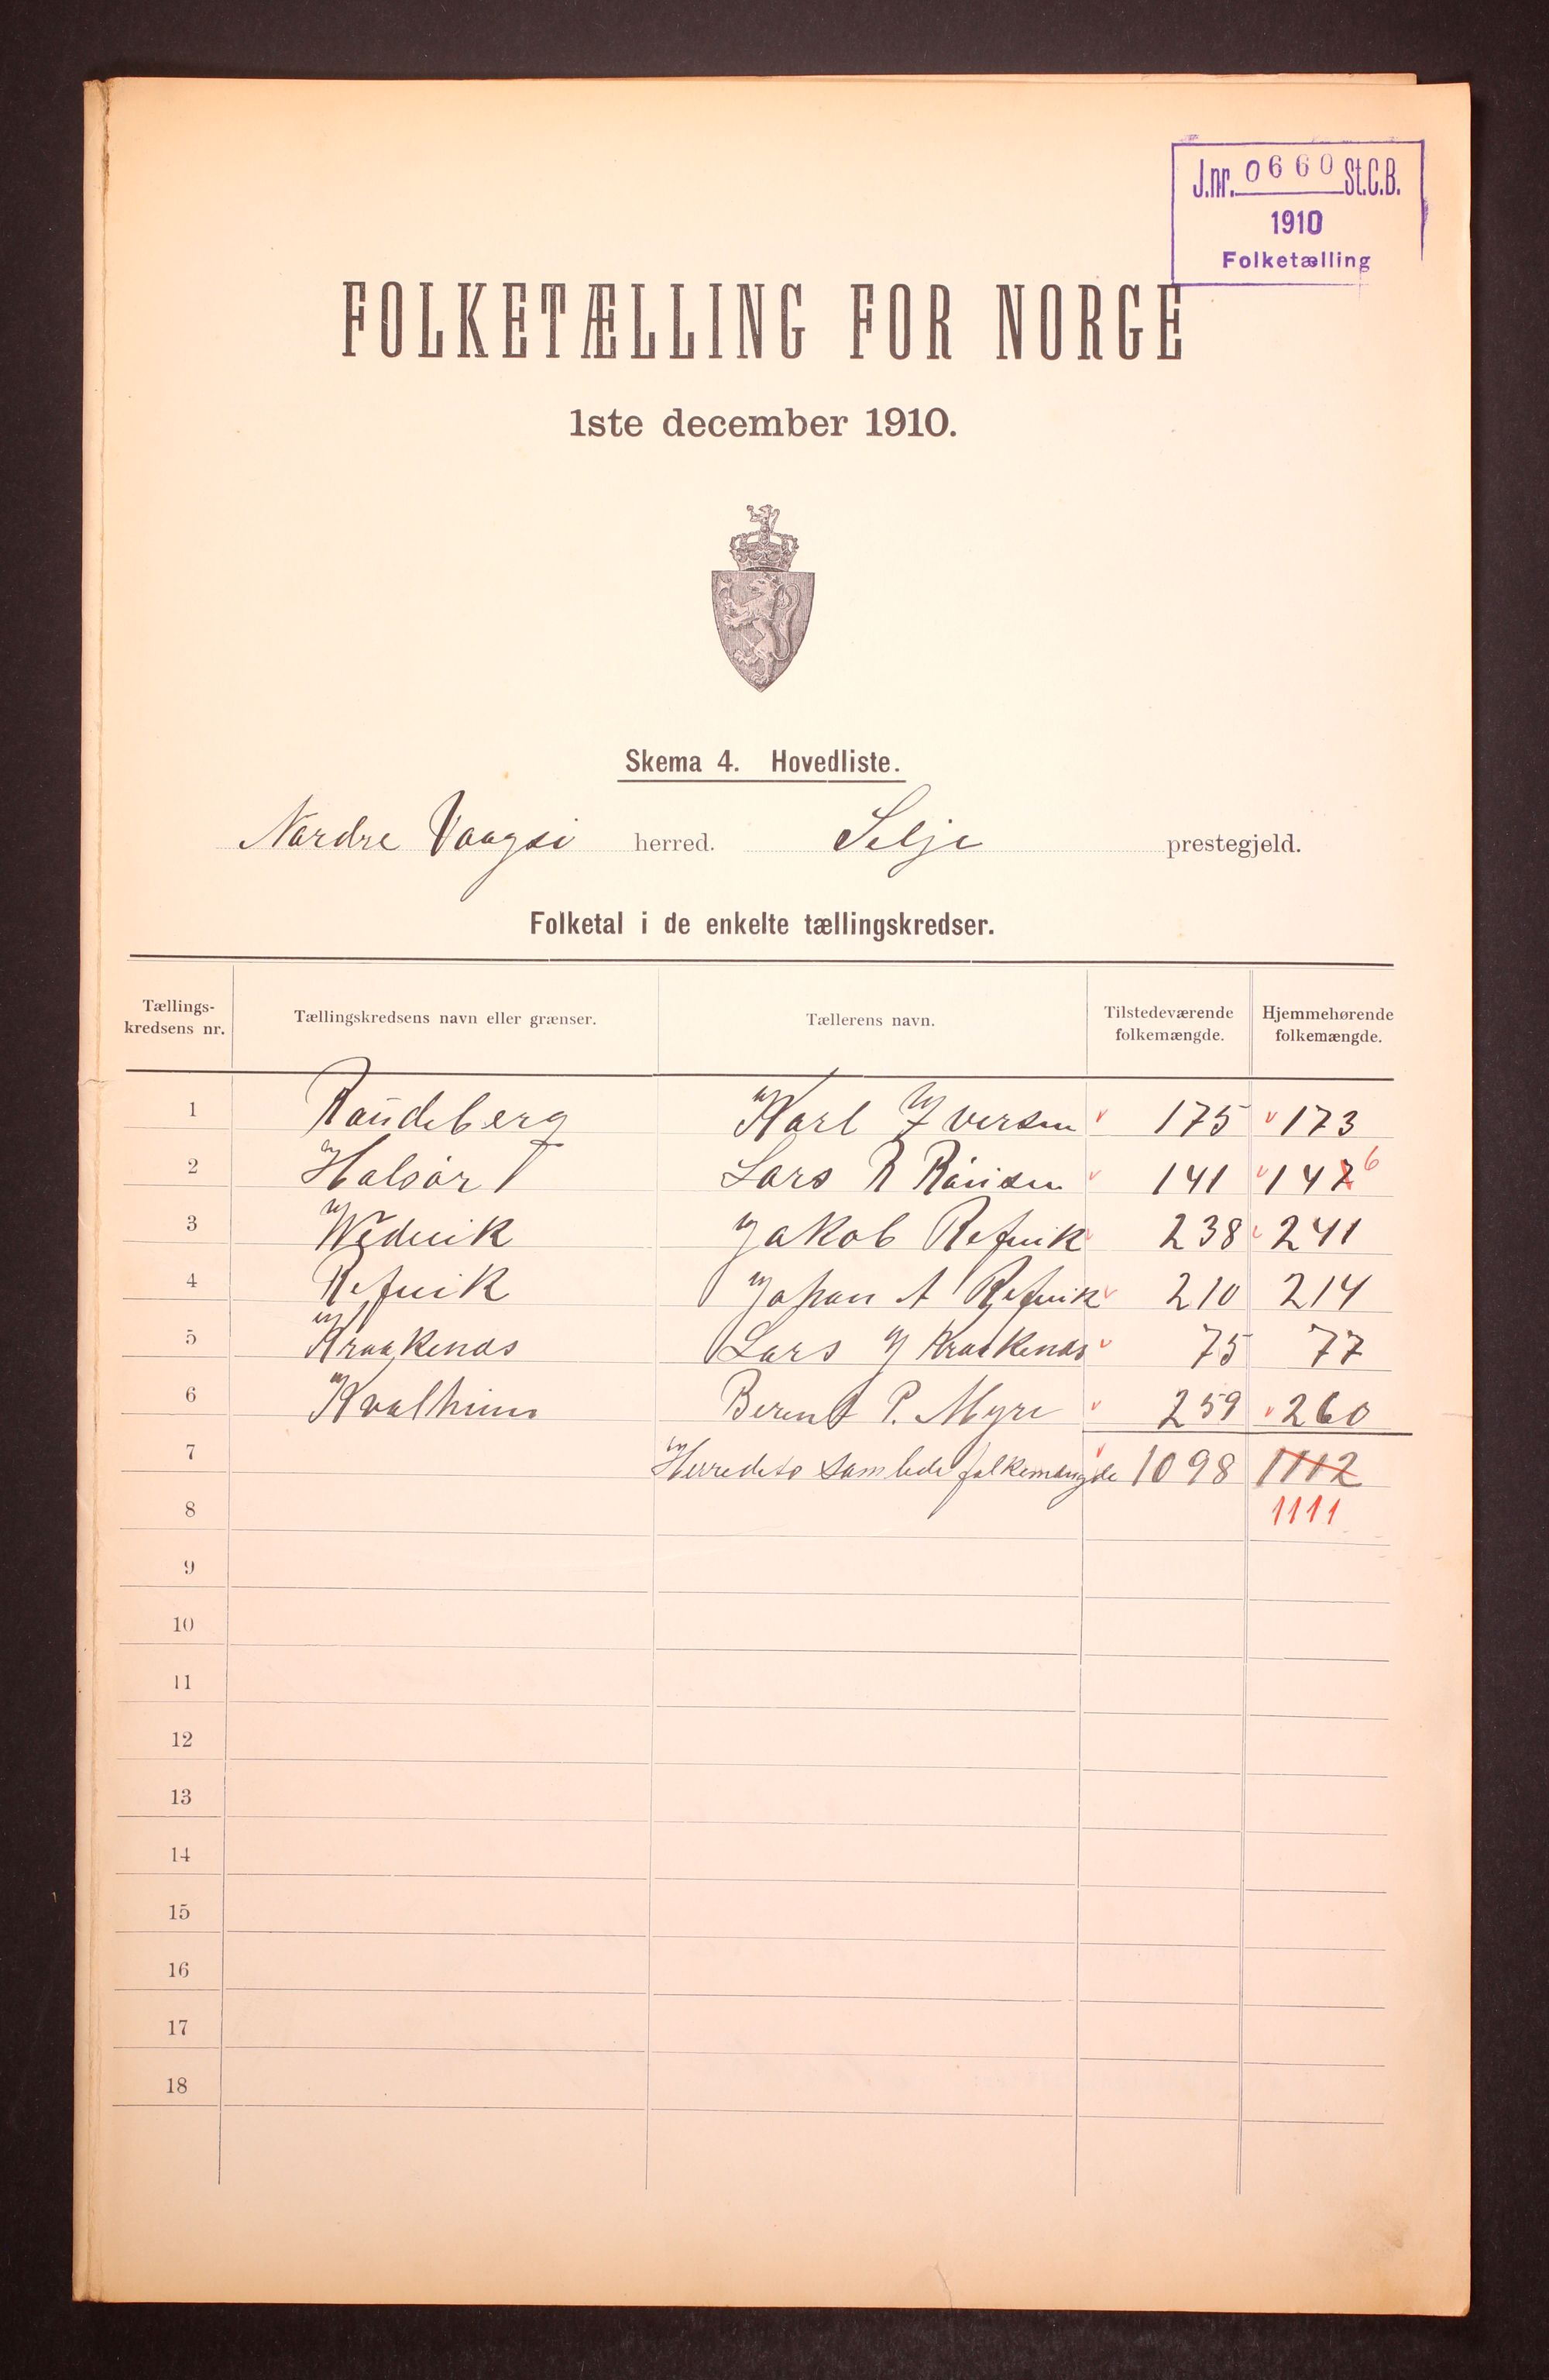 J.nr. 0660 St.C.B.
1910
Folketælling
FOLKETÆLLING FOR NORGE
1ste december 1910.
Skema 4. Hovedliste.
Nordre Vaagsø herred. Selje prestegjeld.
Folketal i de enkelte tællingskredser.
Tællings-kredsens nr. Tællingskredsens navn eller grænser. Tællerens navn. Tilstedeværende folkemængde. Hjemmehørende folkemængde.
1 Raudeberg Karl Iversen 175 173
2 Halsør Lars R 141 147 6
3 Wedvik Jakob Refvik 238 241
4 Refvik Johan A Refvik 210 214
5 Kraakenæs Lars J Kraakenæs 75 77
6 Kvalheim Bernt P. Myre 259 260
7 Herredets samlede folkemængde 1098 1112
8 1111
9
10
11
12
13
14
15
16
17
18